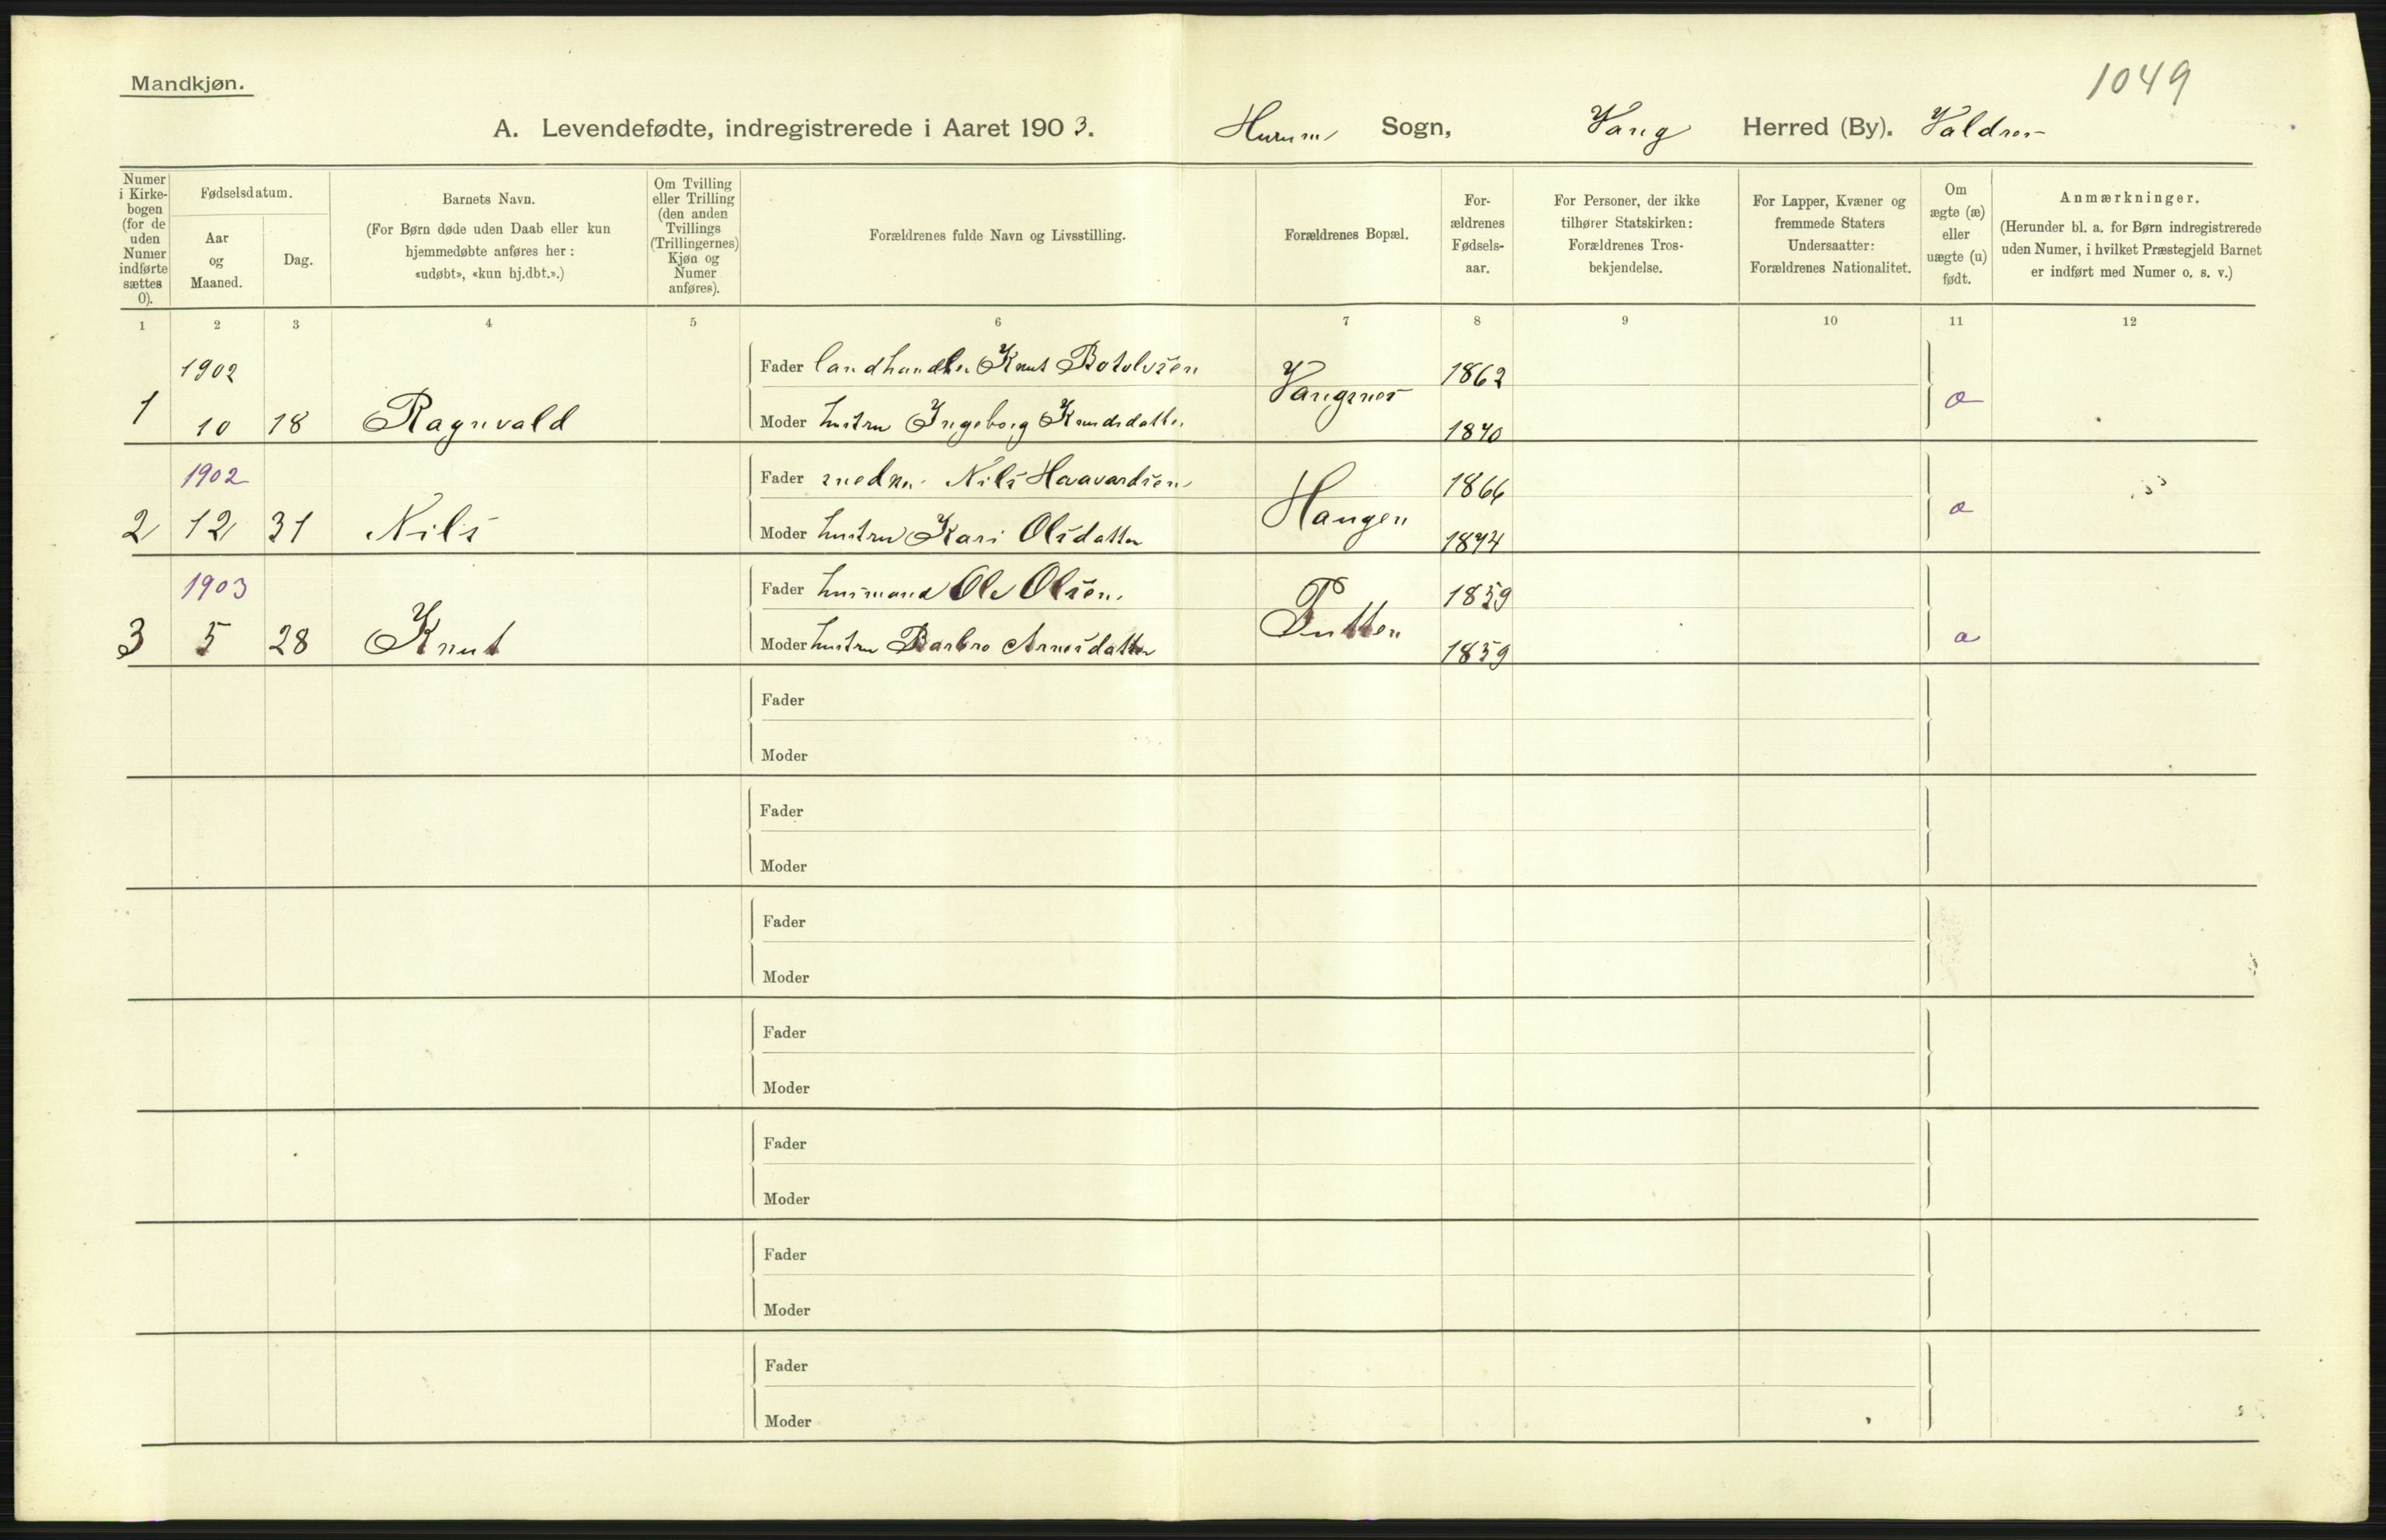 1049
Mandkjøn.
A. Levendefødte, indregistrerede i Aaret 1903. Hurum Sogn, Vang Herred (By). Valdres
Numer i Kirke-bogen (for de uden Numer indførte sættes 0).
Fødselsdatum.
Aar og Maaned.
Dag.
Barnets Navn.
(For Børn døde uden Daab eller kun hjemmedøbte anføres her: «udøbt», «kun hj.dbt.».)
Om Tvilling eller Trilling (den anden Tvillings (Trillingernes) Kjøn og Numer anføres).
Forældrenes fulde Navn og Livsstilling.
Forældrenes Bopæl.
For-ældrenes Fødsels-aar.
For Personer, der ikke tilhører Statskirken: Forældrenes Tros-bekjendelse.
For Lapper, Kvæner og fremmede Staters Undersaatter: Forældrenes Nationalitet.
Om ægte (æ) eller uægte (u) født.
Anmærkninger.
(Herunder bl. a. for Børn indregistrerede uden Numer, i hvilket Præstegjeld Barnet er indført med Numer o. s. v.)
1 2 3 4 5 6 7 8 9 10 11 12
1902 Fader landhandler Knut Botolvsen Vangsnes 1862
1 10 18 Ragnvald Moder hustru Ingeborg Knudsdatter 1870
1902 Fader snedker Nils Haavardsen Haugen 1866
2 12 31 Nils Moder hustru Kari Olsdatter 1874
1903 Fader husmand Ole Olsen 1859
3 5 28 Knut Moder hustru Barbro Arnesdatter 1859
Fader
Moder
Fader
Moder
Fader
Moder
Fader
Moder
Fader
Moder
Fader
Moder
Fader
Moder